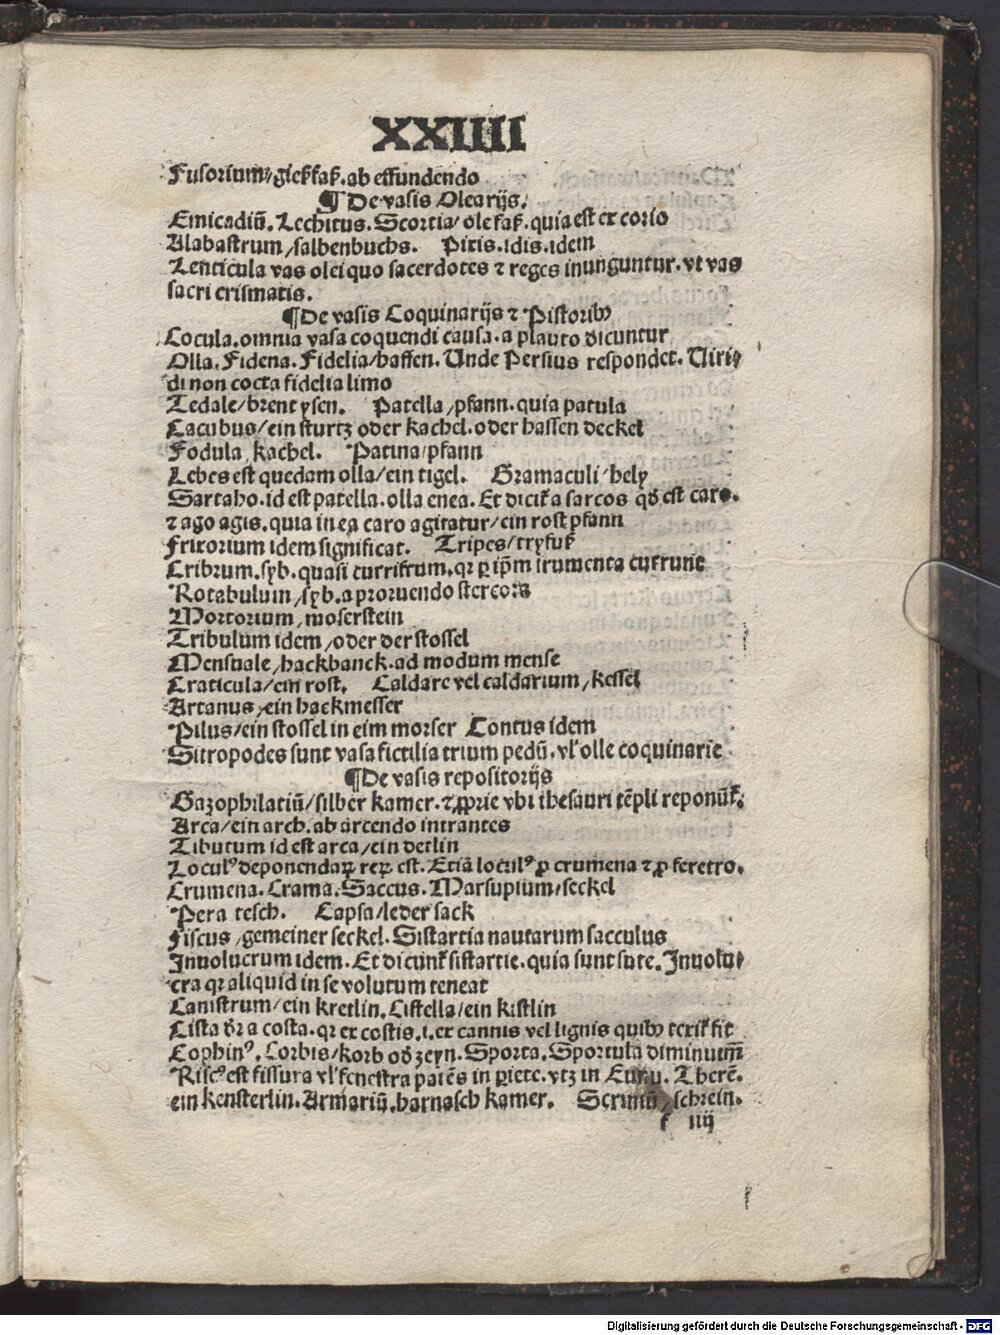 XXIIII
Fusorium/gießfaß.ab effundendo
¶ De vasis Olearijs.
Emicadiū. Lechitus. Scortia/ole faß.quia est ex corio
Alabastrum/salbenbuchs. Pixis.idis.idem
Lenticula vas olei quo sacerdotes ⁊ reges inunguntur.vt vas
sacri crismatis.
¶De vasis Coquinarijs ⁊ Pistoribꝰ
Cocula.omnia vasa coquendi causa.a plauto dicuntur
Olla. Fidena. Fidelia/haffen. Unde Persius respondet. Uiri⸗
di non cocta fidelia limo
Tedale/brent ysen. Patella/pfann.quia patula
Cacubus/ein sturtz oder kachel.oder haffen deckel
Fodula/kachel. Patina/pfann
Lebes est quedam olla/ein tigel. Gramaculi/hely
Sartaho.id est patella.olla enea. Et dicit̃ a sarcos qđ est caro.
⁊ ago agis.quia in ea caro agitatur/ein rost pfann
Frixorium idem significat. Tripes/tryfuß
Cribrum.syb.quasi currifrum.qꝛ ꝑ ip̄m frumenta currunt
Rotabulum/syb.a proruendo stercora
Mortorium/moserstein
Tribulum idem/oder der stossel
Mensuale/hackbanck.ad modum mense
Craticula/ein rost. Caldare vel caldarium/kessel
Artanus/ein hackmesser
Pilus/ein stossel in eim morser Contus idem
Sitropodes sunt vasa fictilia trium pedū.vl' olle coquinarie
¶De vasis repositorijs
Gazophilatiū/silber kamer.⁊ ꝓprie vbi thesauri tēpli reponūt̃.
Arca/ein arch.ab arcendo intrantes
Tibutum id est arca/ein detlin
Loculꝰ deponendaꝝ reꝝ est. Etiā loculꝰ ꝓ crumena ⁊ ꝓ feretro.
Crumena. Crama. Saccus. Marsupium/seckel
Pera tesch. Capsa/leder sack
Fiscus/gemeiner seckel. Sistartia nautarum sacculus
Inuolucrum idem. Et dicunt̃ sistartie.quia sunt sute. Inuolu⸗
cra qꝛ aliquid in se volutum teneat
Canistrum/ein kretlin. Cistella/ein kistlin
Cista dr̄ a costa.qꝛ ex costis.i.ex cannis vel lignis quibꝰ texit̃ sit
Cophinꝰ. Corbis/korb oď zeyn. Sporta. Sportula diminutiuū
Riscꝰ est fissura vl' fenestra patēs in ꝑiete.vtꝫ in Eunu. Therē.
ein kensterlin. Armariū.harnasch kamer. Scriniū/schrein.
iiij